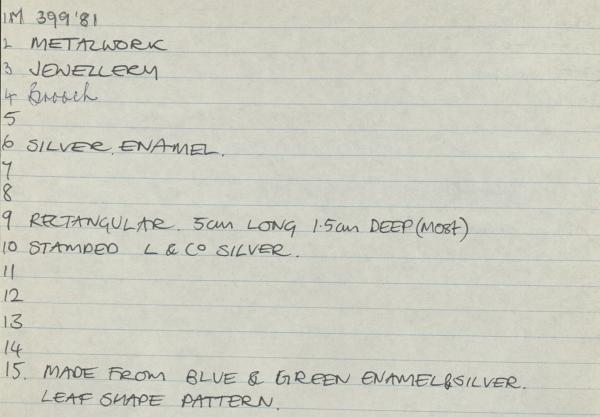 1M 399'81
2 METALWORK
3 JEWELLERY
4 Brooch
5
6 SILVER. ENAMEL.
7
8
9 RECTANGULAR. 5cm LONG 1.5cm DEEP (MOST)
10 STAMPED L & Co SILVER.
11
12
13
14
15. MADE FROM BLUE & GREEN ENAMEL & SILVER.
LEAF SHAPE PATTERN.